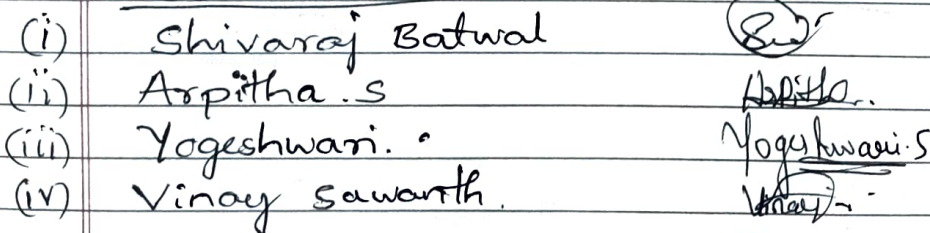 (i) Shivaraj Batwal
(ii) Arpitha . S Arpitha.
(iii) Yogeshwari. Yogeshwari.S
(iv) Vinay Sawanth. Vinay